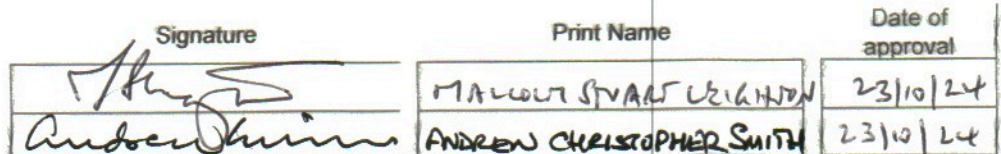 Signature Print Name Date of
approval
MALCOLM STUART LEIGHTON 23/10/24
ANDREW CHRISTOPHER SMITH 23/10/24